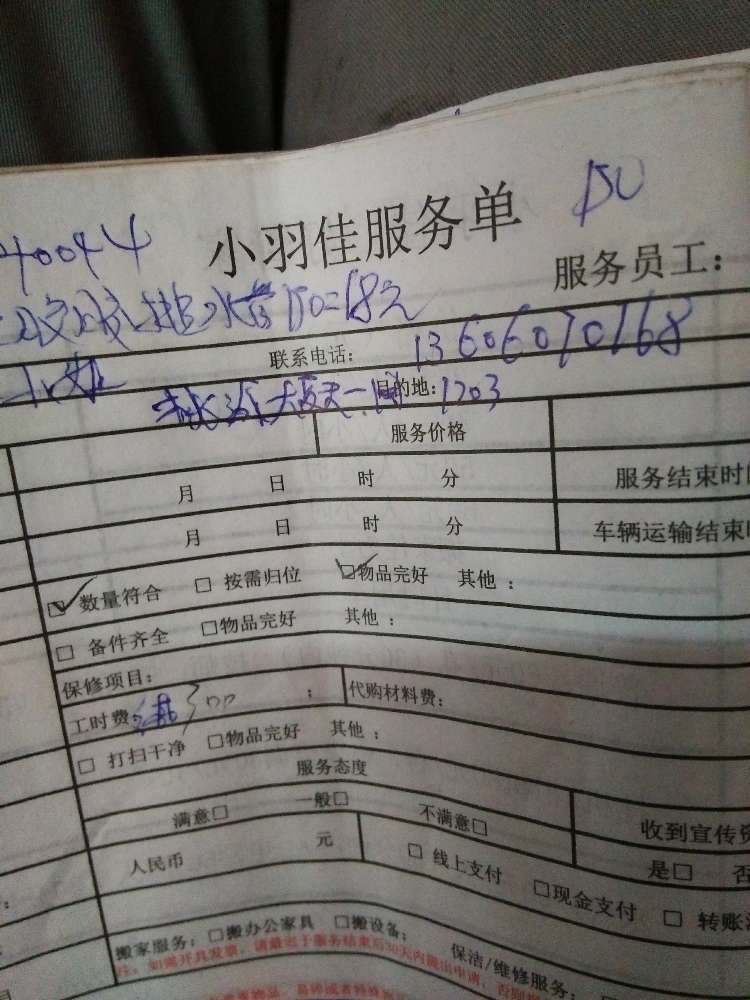 40044 小羽佳服务单 150
服务员工：
排水管150=18元
联系电话： 13606070168
目的地： 1203
服务价格
月 日 时 分 服务结束时
月 日 时 分 车辆运输结束
☑数量符合 □按需归位 ☑物品完好 其他：
□备件齐全 □物品完好 其他：
保修项目：
工时费： 300 ； 代购材料费：
□打扫干净 □物品完好 其他：
服务态度
满意□ 一般□ 不满意□ 收到宣传
人民币 元 □线上支付 □现金支付 □转账 是□ 否
搬家服务：□搬办公家具 □搬设备； 保洁/维修服务：
注：如需开具发票，请最迟于服务结束后30天内提出申请，否则